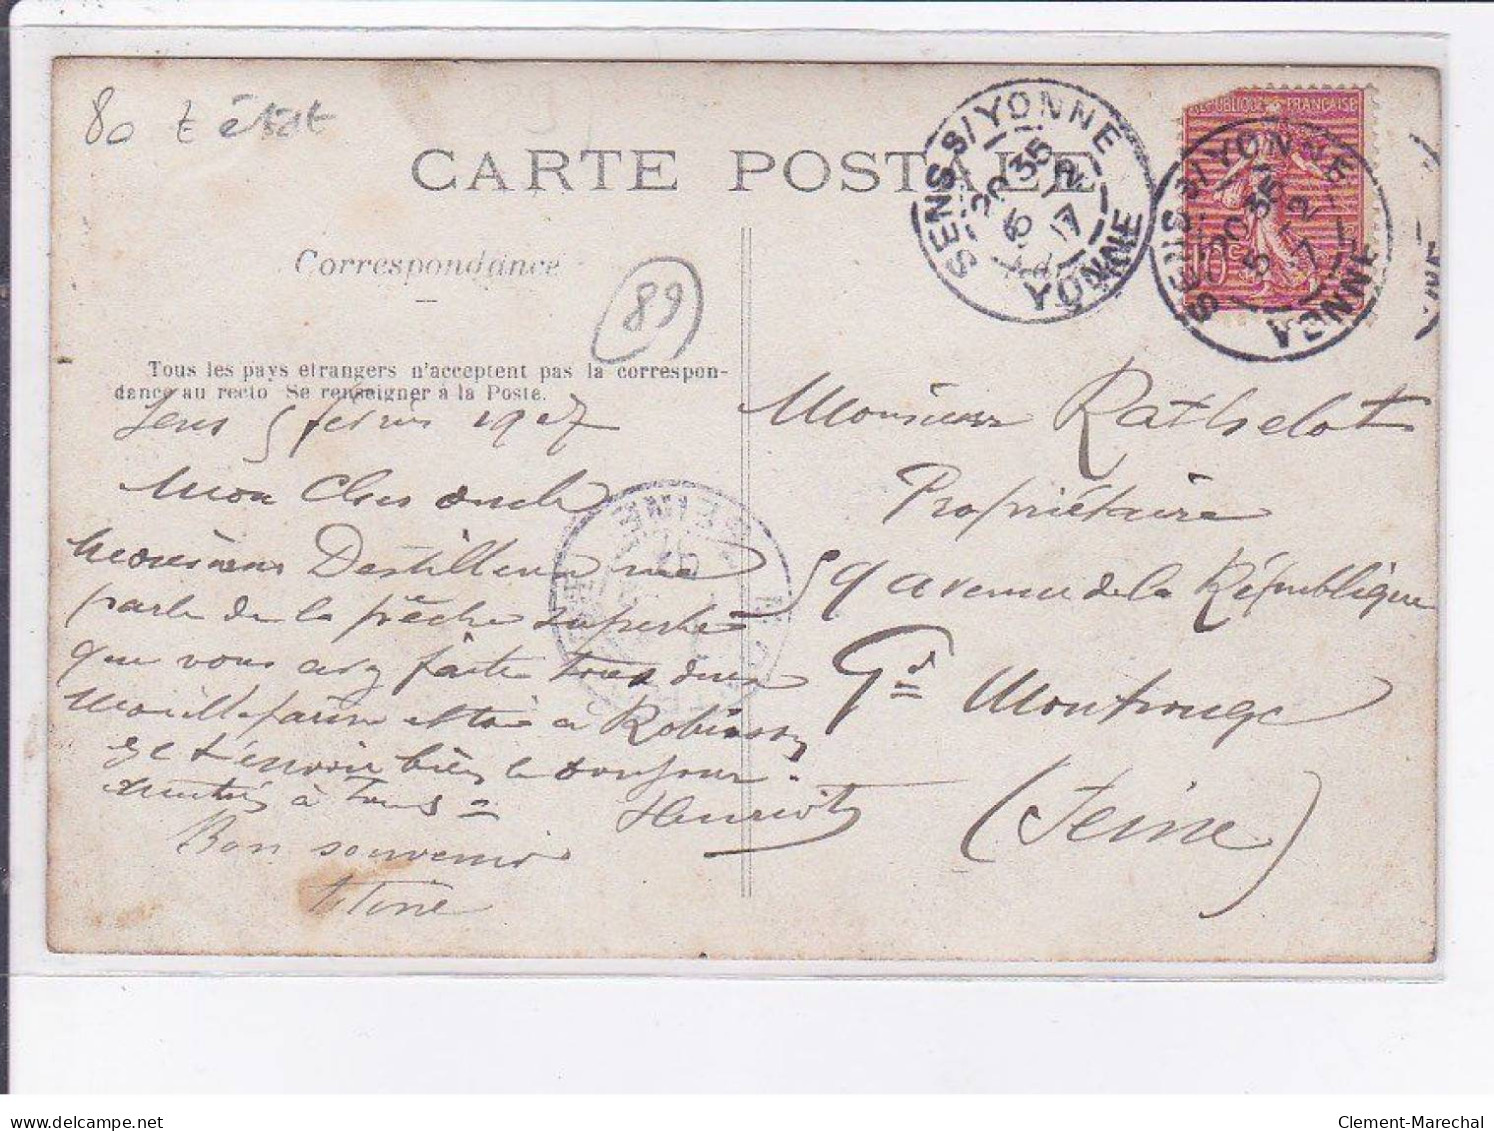 80 t état
CARTE POSTALE
SENS S/YONNE
20 35
5 2
YONNE
REPUBLIQUE FRANÇAISE
SENS S/YONNE
20 35
5 2
YONNE
Correspondance
89
Tous les pays étrangers n'acceptent pas la correspon-
dance au recto Se renseigner à la Poste.
Sens 5 février 1907
Mon Cher oncle
Monsieur Destilleur me
parle de la pêche superbe
que vous avez faite tous deux
à Robinson
Je t'envoie bien le bonjour
à tous =
Henriot
Bon souvenir
titine
Monsieur Rathelot
Propriétaire
59 avenue de la République
Gd Montrouge
(Seine)
SEINE
Clement-Marechal